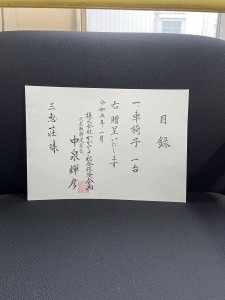 目録
一 車椅子 一台
右 贈呈いたします
令和五年一月
中泉輝彦
三恵荘様